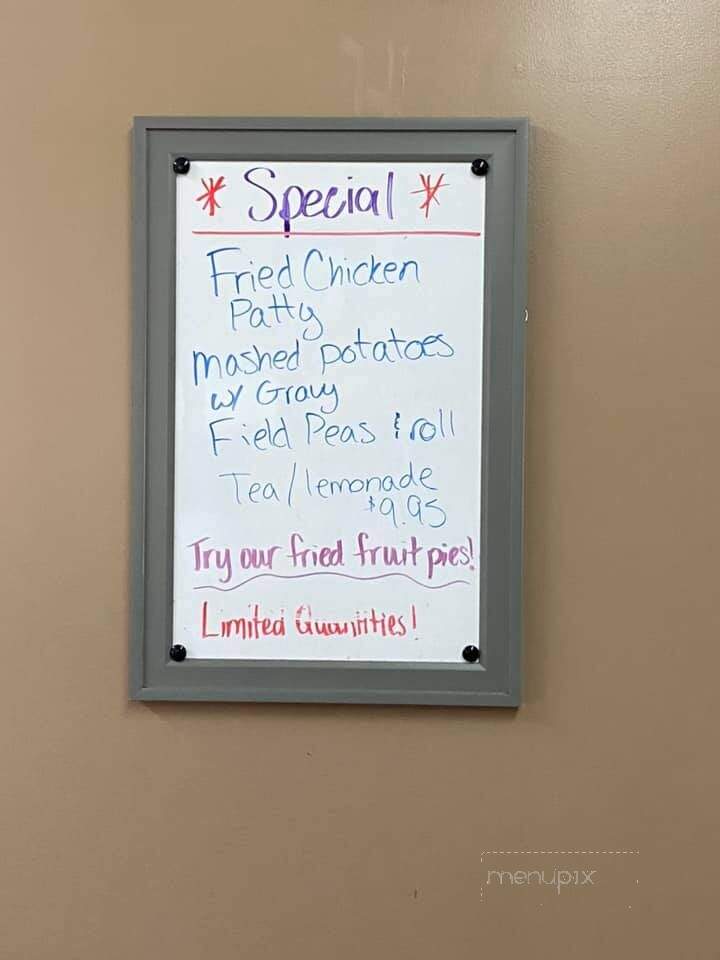 * Special *
Fried Chicken
Patty
mashed potatoes
w/ Gravy
Field Peas & roll
Tea/lemonade
$9.95
Try our fried fruit pies!
Limited Quantities!
menupix